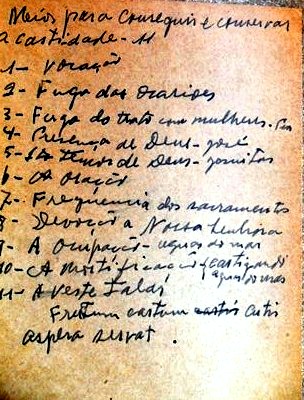 Meios para conseguir e conservar
a castidade - 11
1 - Vocação
2 - Fuga das ocasiões
3 - Fuga do trato com mulheres -
4 - Presença de Deus - José
5 - O temor de Deus -
6 - A oração
7 - Frequencia dos sacramentos
8 - Devoção a Nossa Senhora
9 - A Ocupação - aguas do mar
10 - A mortificação (castigando
aguas do mar
11 - A veste talar
castum castris
aspera servat.